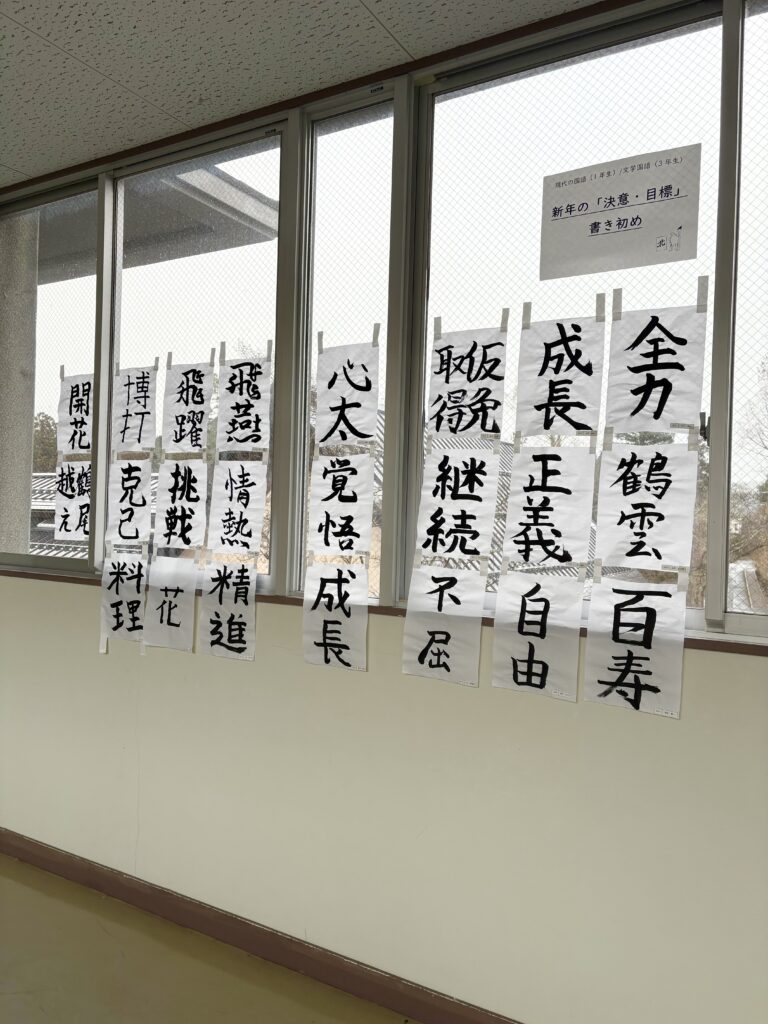 現代の国語（1年生）/文学国語（3年生）
新年の「決意・目標」
書き初め
北
全力
鶴雲
百寿
成長
正義
自由
仮免
取得
継続
不屈
心太
覚悟
成長
飛燕
情熱
精進
飛躍
挑戦
花
博打
克己
料理
開花
鶴尾
越え